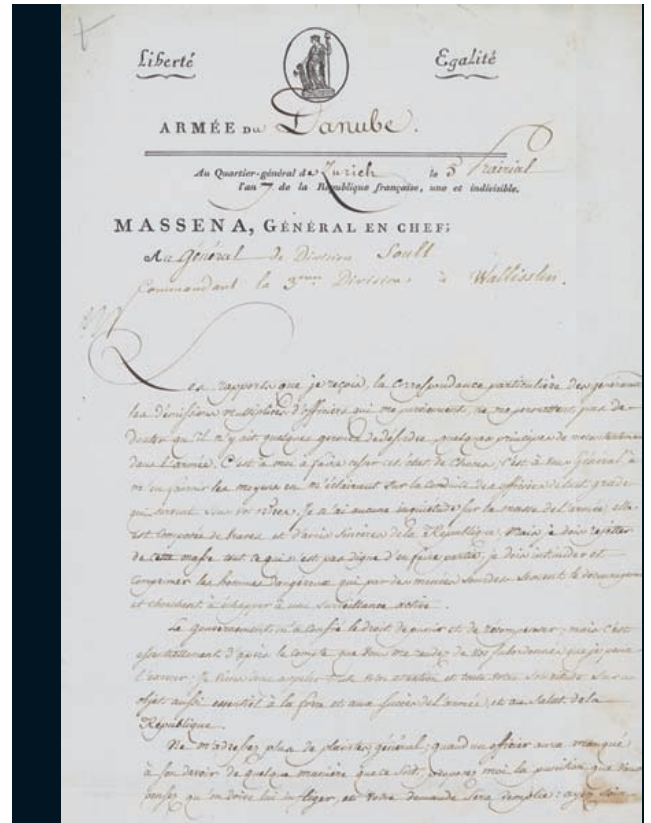 Liberté Egalité
ARMÉE DU Danube.
Au Quartier-général de Zurich le 5 Prairial
l'an 7 de la République française, une et indivisible.
MASSENA, GÉNÉRAL EN CHEF;
Au Général de Division Soult
Commandant la 3eme Division à Wallisslen.
Les rapports que je reçois, la correspondance particulière des généraux
les démissions multipliées d'officiers qui me parviennent, ne me permettent pas de
douter qu'il n'y ait quelques germes de désordre, quelques principes de mécontentement
dans l'armée. C'est à moi à faire cesser cet état de choses, c'est à vous Général à
m'en fournir les moyens en m'éclairant sur la conduite des officiers de tout grade
qui servent sous vos ordres. Je n'ai aucune inquiétude sur la masse de l'armée, elle
est composée de braves et d'amis sincères de la République, mais je dois rejetter
de cette masse tout ce qui n'est pas digne d'en faire partie, je dois intimider et
comprimer les hommes dangereux qui par des menées sourdes sèment le découragement
et cherchent à échapper à une surveillance active.
Le gouvernement m'a confié le droit de punir et de récompenser; mais c'est
essentiellement d'après le compte que vous me rendez de vos subordonnés que je puis
l'exercer. Je viens donc appeler toute votre attention et toute votre sollicitude sur un
objet aussi essentiel à la force et aux succès de l'armée, et au salut de la
République.
Ne m'adressez plus de plaintes, général; quand un officier aura manqué
à son devoir de quelque manière que ce soit, proposez moi la punition que vous
pensez qu'on doive lui infliger, et votre demande sera remplie: ayez soin